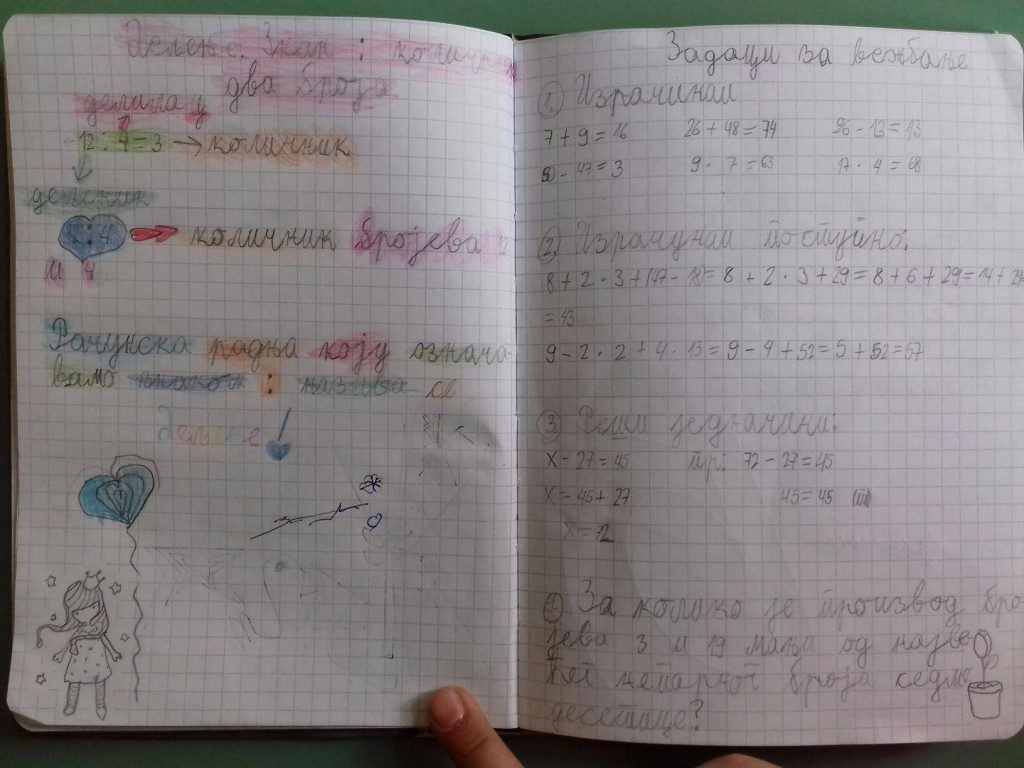 Дељење. Знак : количник
два броја
делилац
12 : 4 = 3 → количник
дељеник
12 : 4 → количник бројева 12
и 4
Рачунска радња коју означа-
вамо знаком : назива се
дељење
Задаци за вежбање
1) Израчунај
7 + 9 = 16 26 + 48 = 74 26 - 13 = 13
50 - 47 = 3 9 · 7 = 63 17 · 4 = 68
2) Израчунај поступно.
8 + 2 · 3 + (47 - 18) = 8 + 2 · 3 + 29 = 8 + 6 + 29 = 14 + 29
= 43
9 - 2 · 2 + 4 · 13 = 9 - 4 + 52 = 5 + 52 = 57
3) Реши једначину:
x - 27 = 45 пр: 72 - 27 = 45
x = 45 + 27 45 = 45 (т)
x = 72
4) За колико је производ бро-
јева 3 и 19 мањи од најве-
ћег непарног броја седме
десетице?